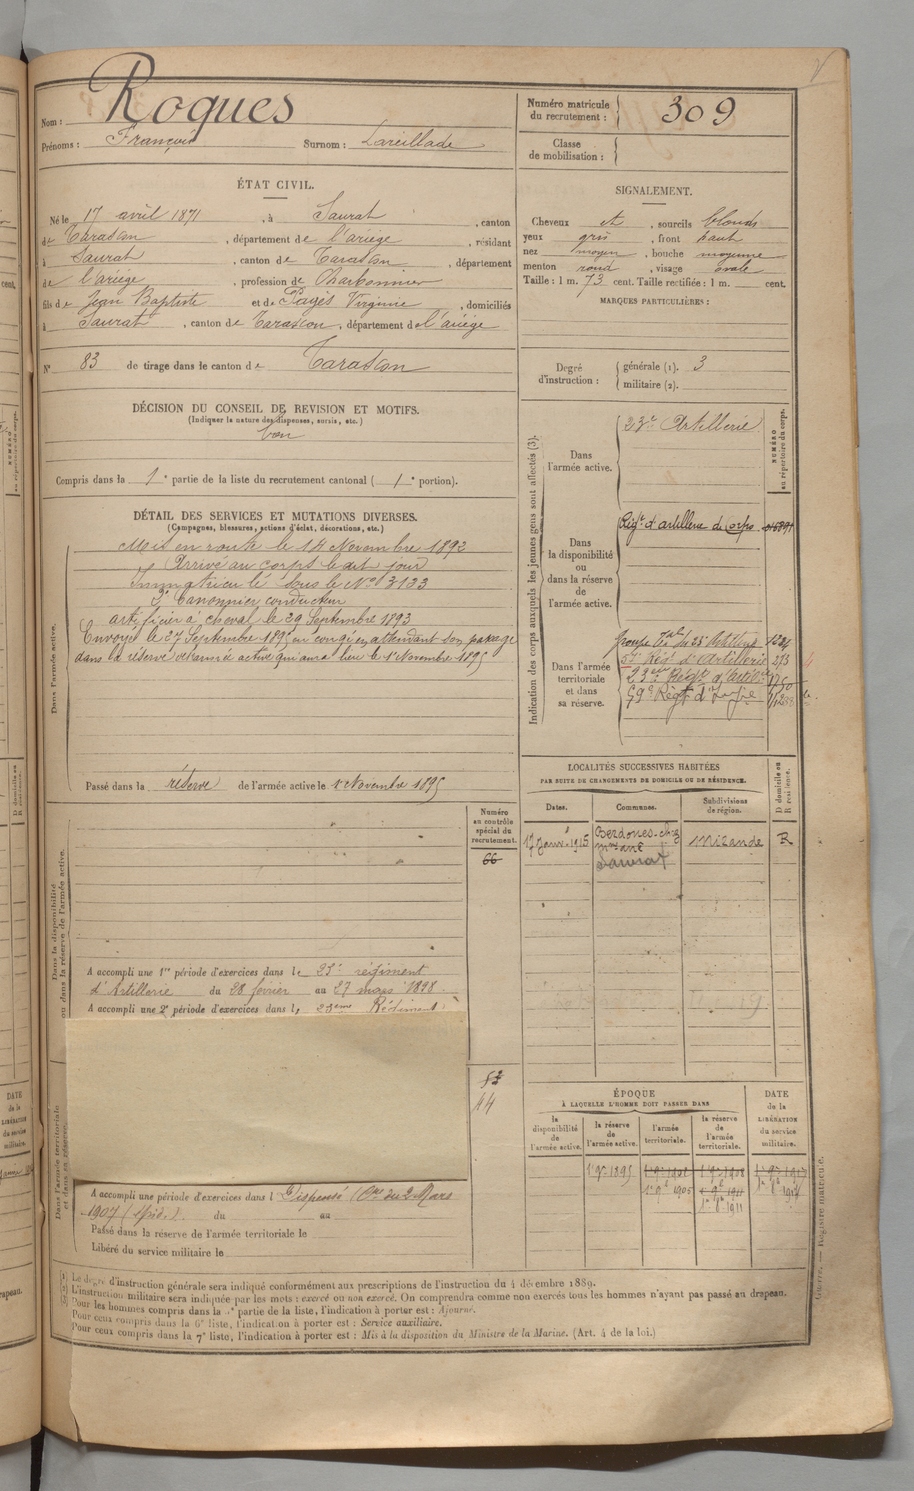 Nom : Roques
Prénoms : François Surnom : Lareillade
Numéro matricule du recrutement : 309
Classe de mobilisation :
ÉTAT CIVIL.
Né le 17 avril 1871, à Saurat, canton
de Tarascon, département de l'ariège, résidant
à Saurat, canton de Tarascon, département
de l'ariège, profession de Charbonnier
fils de Jean Baptiste et de Pagès Virginie, domiciliés
à Saurat, canton de Tarascon, département de l'ariège
N° 83 de tirage dans le canton de Tarascon
SIGNALEMENT.
Cheveux et, sourcils blonds
yeux gris, front haut
nez moyen, bouche moyenne
menton rond, visage ovale
Taille : 1 m. 73 cent. Taille rectifiée : 1 m. cent.
MARQUES PARTICULIÈRES :
Degré d'instruction :
générale (1). 3
militaire (2).
DÉCISION DU CONSEIL DE REVISION ET MOTIFS.
(Indiquer la nature des dispenses, sursis, etc.)
bon
Compris dans la 1e partie de la liste du recrutement cantonal (1e portion).
DÉTAIL DES SERVICES ET MUTATIONS DIVERSES.
(Campagnes, blessures, actions d'éclat, décorations, etc.)
Dans l'armée active.
Mis en route le 14 Novembre 1892
Arrivé au corps le dit jour
Immatriculé sous le N° 3133
2e Canonnier conducteur
artificier à cheval le 29 Septembre 1893
Envoyé le 27 Septembre 1895 en congé en attendant son passage
dans la réserve de l'armée active qui aura lieu le 1er Novembre 1895
Passé dans la réserve de l'armée active le 1er Novembre 1895
Indication des corps auxquels les jeunes gens sont affectés (3).
NUMÉRO au répertoire du corps.
Dans l'armée active.
23e Artillerie
Dans la disponibilité ou dans la réserve de l'armée active.
Régt d'artillerie de corps
Dans l'armée territoriale et dans sa réserve.
groupe du 23e Artillerie
5e Rég. d'Artillerie 273
23eme Régt d'artie
59e Régt d'Infie
LOCALITÉS SUCCESSIVES HABITÉES
PAR SUITE DE CHANGEMENTS DE DOMICILE OU DE RÉSIDENCE.
Dates. Communes. Subdivisions de région. D domicile ou R résidence.
17 Janv. 1915 Berdoues chez Mirande R
Saurat
Dans la disponibilité ou dans la réserve de l'armée active.
Numéro au contrôle spécial du recrutement.
66
A accompli une 1re période d'exercices dans le 23e régiment
d'Artillerie du 28 février au 27 mars 1898
A accompli une 2e période d'exercices dans le 23eme Régiment
52
44
Dans l'armée territoriale et dans sa réserve.
A accompli une période d'exercices dans l Dispensé (Cre du 2 Mars
1907 ) du au
Passé dans la réserve de l'armée territoriale le
Libéré du service militaire le
ÉPOQUE
À LAQUELLE L'HOMME DOIT PASSER DANS
la disponibilité de l'armée active. la réserve de l'armée active. l'armée territoriale. la réserve de l'armée territoriale. DATE de la LIBÉRATION du service militaire.
1er 9e 1895
1er 9e 1905 1911
1er 8e 1911
(1) Le degré d'instruction générale sera indiqué conformément aux prescriptions de l'instruction du 4 décembre 1889.
(2) L'instruction militaire sera indiquée par les mots : exercé ou non exercé. On comprendra comme non exercés tous les hommes n'ayant pas passé au drapeau.
(3) Pour les hommes compris dans la 5e partie de la liste, l'indication à porter est : Ajourné.
Pour ceux compris dans la 6e liste, l'indication à porter est : Service auxiliaire.
Pour ceux compris dans la 7e liste, l'indication à porter est : Mis à la disposition du Ministre de la Marine. (Art. 4 de la loi.)
Guerre. — Registre matricule.